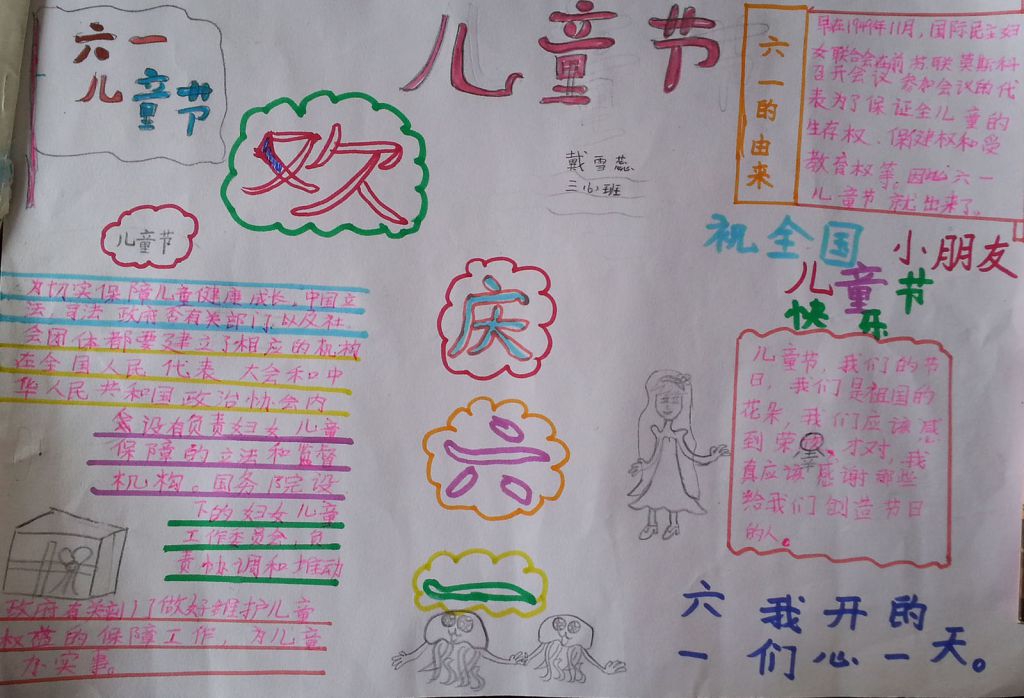 六一
儿童节
儿童节
欢
庆
六
一
戴雪蕊
三(6)班
六一的由来
早在1949年11月,国际民主妇
女联合会在前苏联莫斯科
召开会议 参加会议的代
表为了保证全儿童的
生存权、保健权和受
教育权等。因此六一
儿童节就出来了。
祝全国小朋友
儿童节
快乐
儿童节
为切实保障儿童健康成长,中国立
法、司法 政府各有关部门以及社
会团体都要建立了相应的机构
在全国人民代表大会和中
华人民共和国政治协会内
设有负责妇女儿童
保障的立法和监督
机构。国务院设
下的妇女儿童
工作委员会,负
责协调和推动
政府有关部门了做好维护儿童
权益的保障工作,为儿童
办实事。
儿童节,我们的节
日,我们是祖国的
花朵,我们应该感
到荣幸,才对,我
真应该感谢那些
给我们创造节日
的人。
六一
我们
开心
的一天。